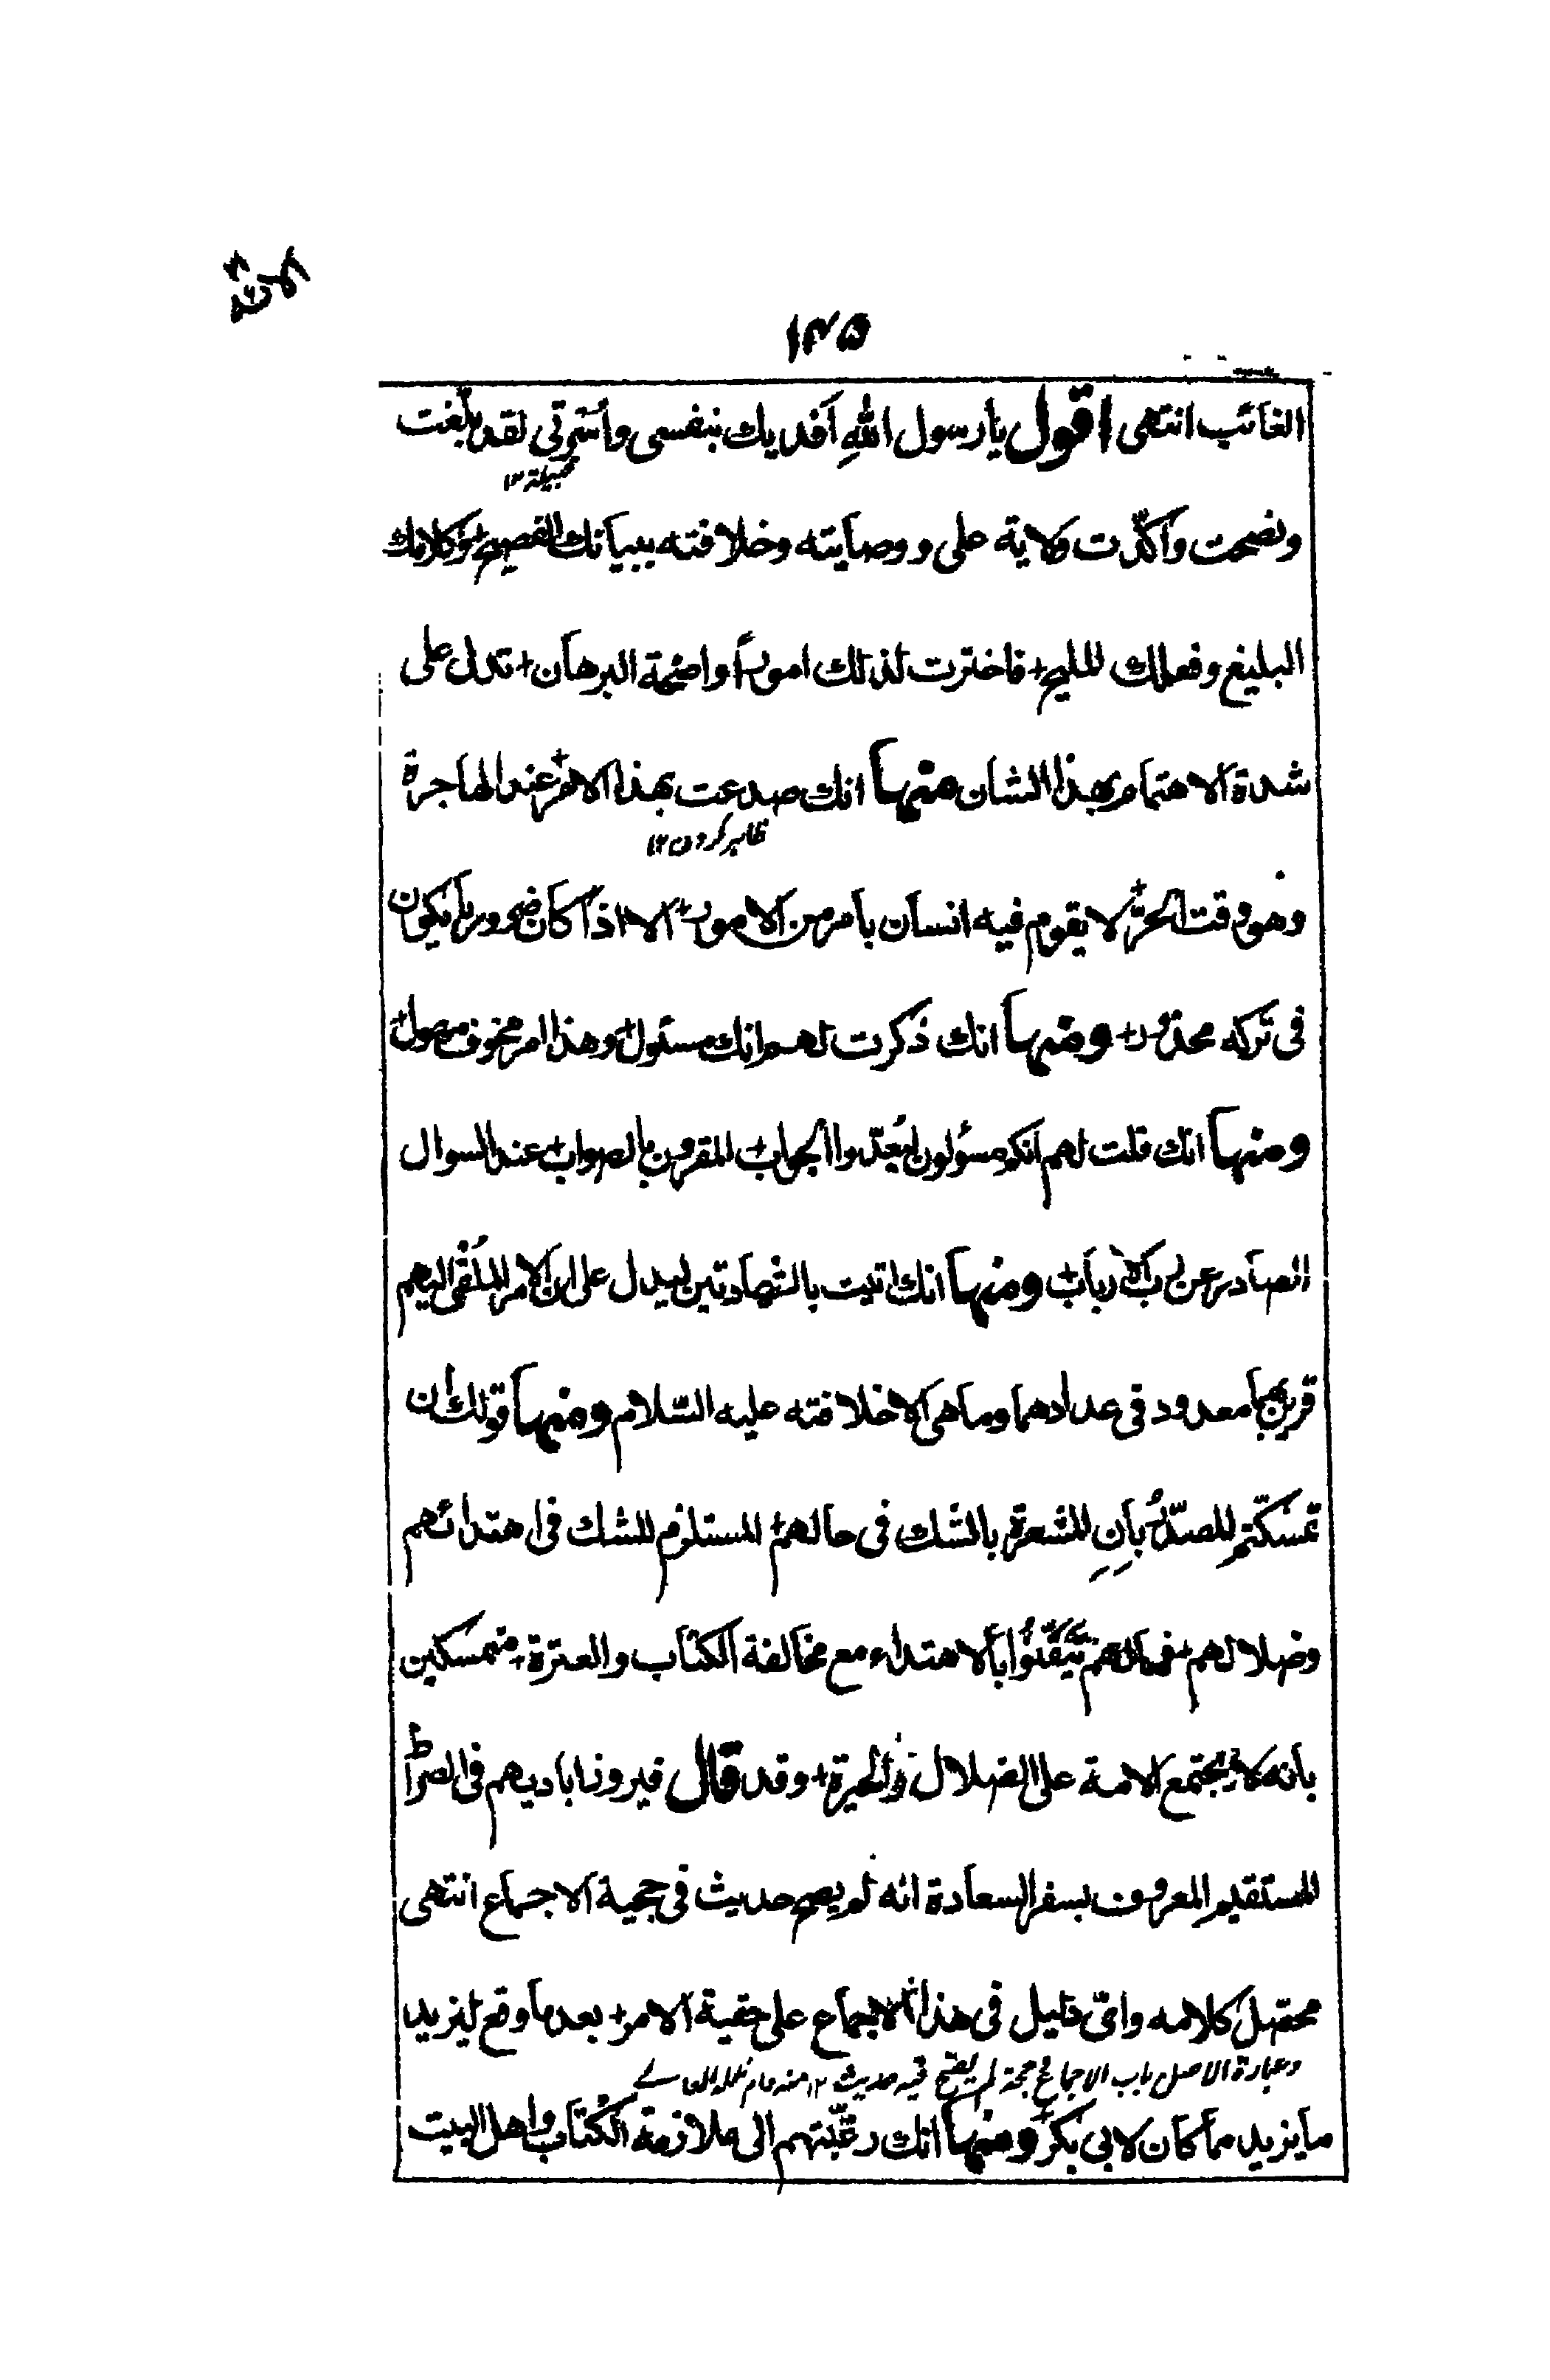 ۱۴۵
الغائب انتهى اقول يا رسول اللهِ افديك بنفسى واُسْرتى لقد بلّغت
قبيلة ۱۲
ونصحت واكّدت ولاية على و ووصايته وخلافته ببيانك الفصيح + وكلامك
البليغ وفعلك المليح + فاخترت لذلك اموراً واضحة البرهان + تدل على
شدة الاهتمام بهذا الشان منها انك صدعت بهذا الامر + عند الهاجرة
ظاهر كردن ۱۲
وهو وقت الحرّ + لا يقوم فيه انسان بامر من الامور + الا اذا كان ضروريا يكون
فى تركه محذور + ومنها انك ذكرت لهم انك مسئول + وهذا امر مخوف مهول +
ومنها انك قلت لهم انكم مسؤلون ليُعدّوا الجواب + المقرون بالصواب + عند السوال
الصادر عن رب الارباب + ومنها انك اتيت بالشهادتين ليدل على ان الامر المُلقى اليهم
قرين بهما معدود فى عدادهما وما هى الا خلافته عليه السّلام ومنها قولك ان
تمسّكتم المصدّرُ بانِ المشعرة بالشك فى حالهم + المستلزم للشك فى اهتدائهم
وضلالهم + فما بالهم تيقّنوا بالاهتداء مع مخالفة الكتاب والعترة + متمسكين
بانه لا يجتمع الامة على الضلال والحيرة + وقد قال فيروزاباديهم فى الصراط
المستقيم المعروف بسفر السعادة انه لم يصح حديث فى حجية الاجماع انتهى
محصّل كلامه واىّ دليل فى هذا الاجماع على حقية الامر + بعد ما وقع ليزيد
وعبارة الاصل باب الاجماع حجة لم يصح فيه حديث ۱۲ منه دام ظله العالى
ما يزيد مما كان لابى بكر + ومنها انك رغّبتهم الى ملازمة الكتاب واهل البيت